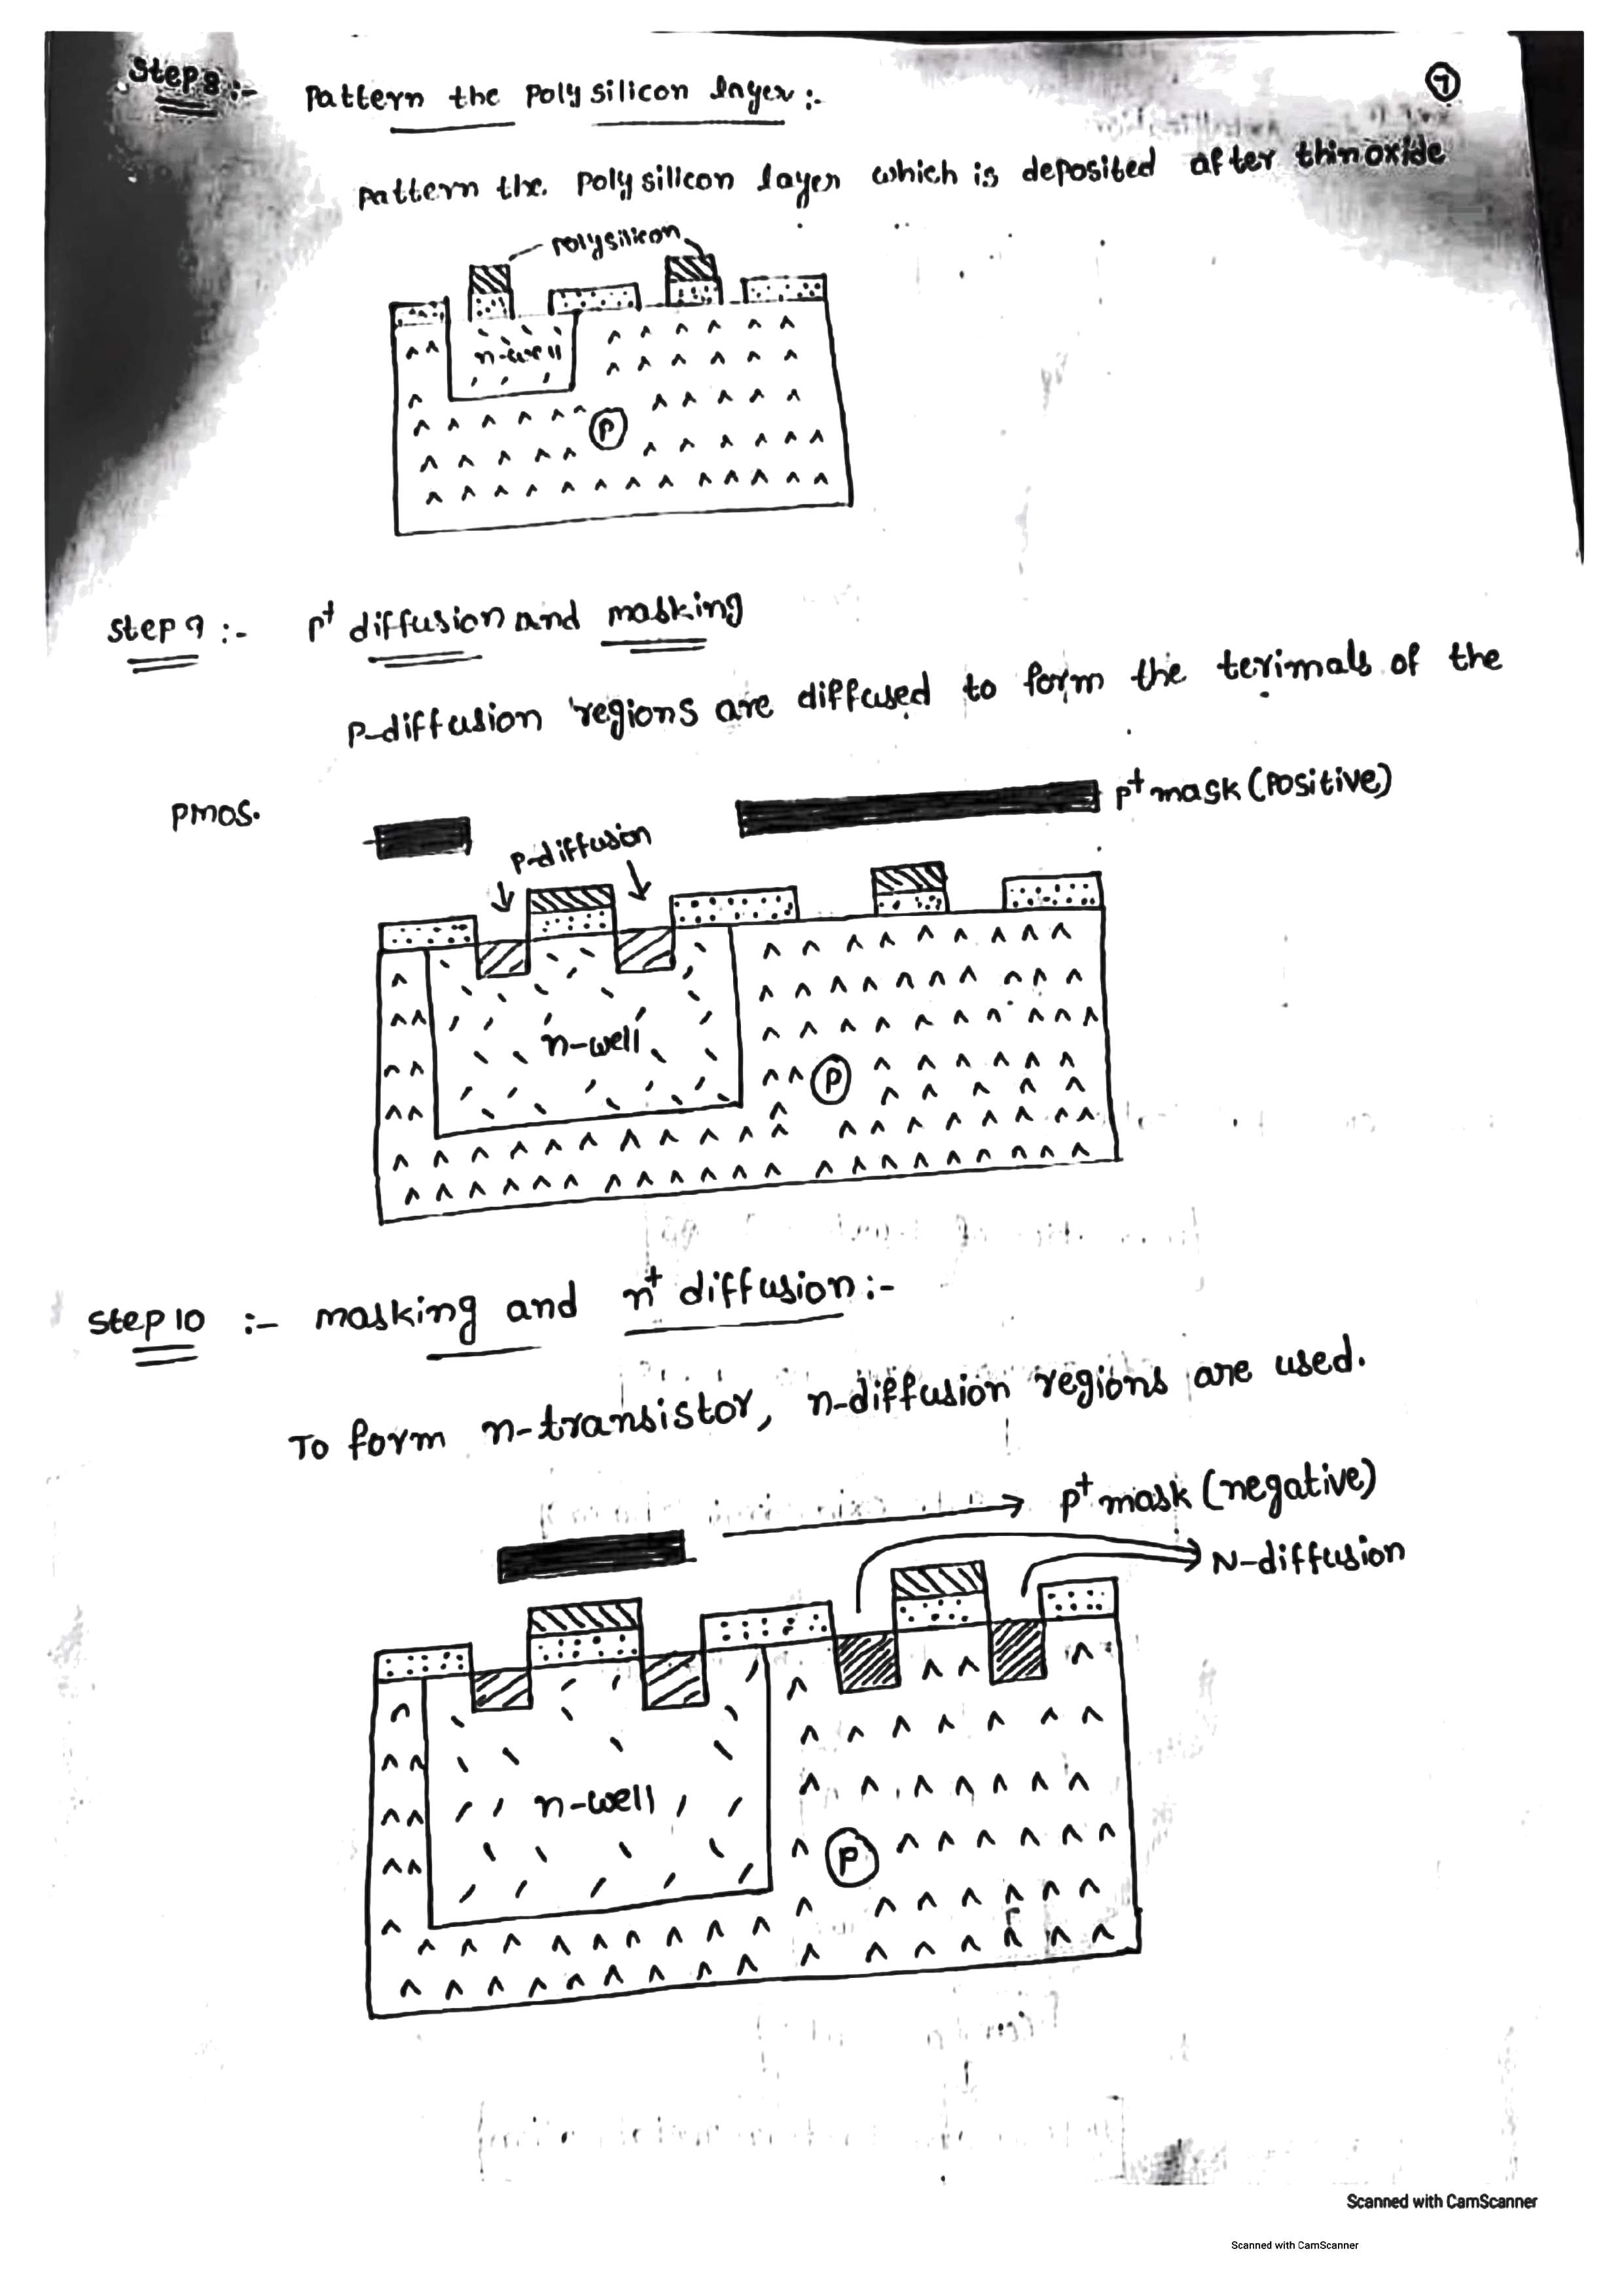 Step 8 :- Pattern the Polysilicon layer :-
7
Pattern the polysilicon layer which is deposited after thinoxide
Polysilicon
n-well
P
Step 9 :- P+ diffusion and masking
P-diffusion regions are diffused to form the terimals of the
PMOS.
P+ mask (Positive)
P-diffusion
n-well
P
Step 10 :- masking and n+ diffusion :-
To form n-transistor, n-diffusion regions are used.
P+ mask (negative)
N-diffusion
n-well
P
Scanned with CamScanner
Scanned with CamScanner